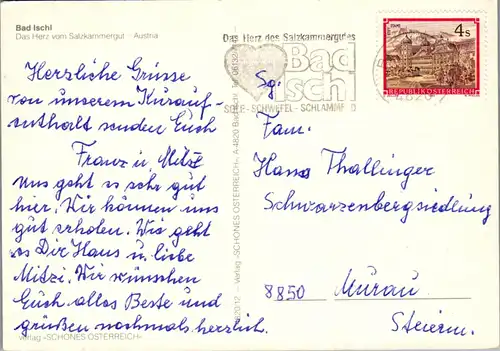 Bad Ischl
Das Herz vom Salzkammergut - Austria
Herzliche Grüsse
von unserem Kurauf-
enthalt senden Euch
Franz u. Mitzi
Uns geht es sehr gut
hier. Wir können uns
gut erholen. Wie geht
es Dir Hans u. liebe
Mitzi. Wir wünschen
Euch alles Beste und
grüßen nochmals herzlich.
Verlag »SCHÖNES ÖSTERREICH«
Verlag »SCHÖNES ÖSTERREICH«, A-4820 Bad Ischl
Das Herz des Salzkammergutes
Bad
Ischl
SOLE - SCHWEFEL - SCHLAMMBAD
4 S
REPUBLIK ÖSTERREICH
Sg.
Fam.
Hans Thallinger
Schwarzenbergsiedlung
8850 Murau
Steierm.